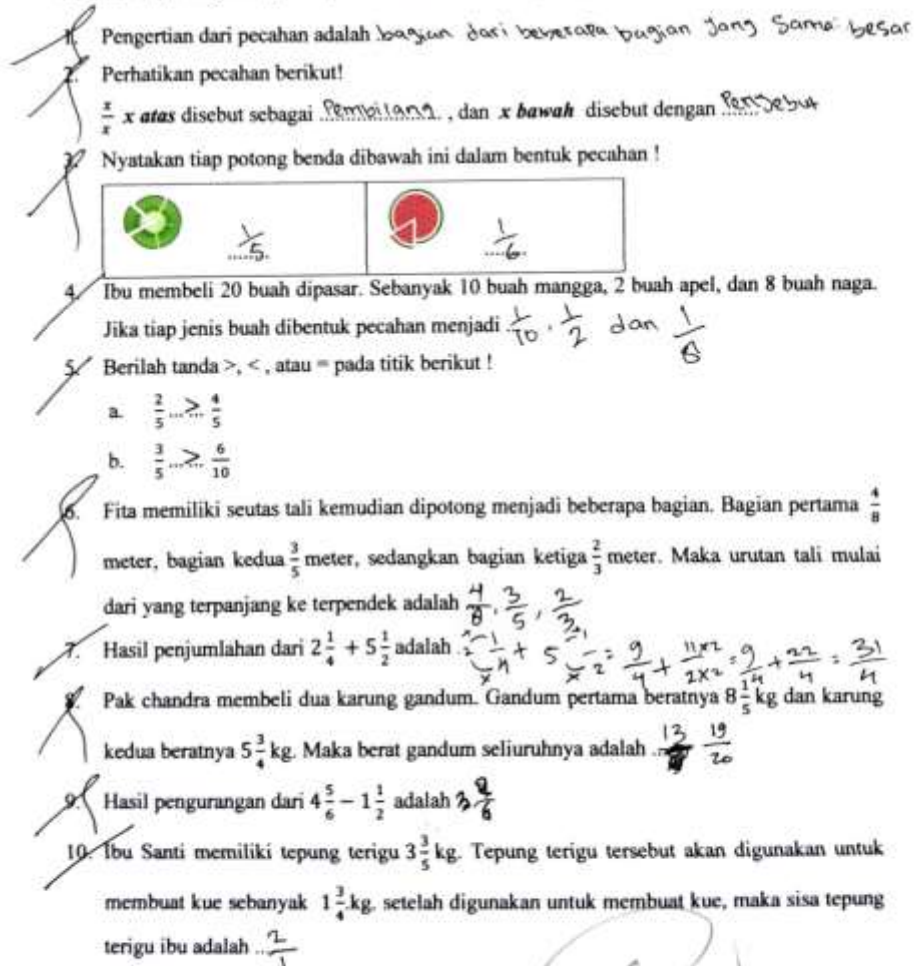 1. Pengertian dari pecahan adalah bagian dari beberapa bagian yang sama besar
2. Perhatikan pecahan berikut!
x/x x atas disebut sebagai Pembilang, dan x bawah disebut dengan Penyebut
3. Nyatakan tiap potong benda dibawah ini dalam bentuk pecahan !
1/5 1/6
4. Ibu membeli 20 buah dipasar. Sebanyak 10 buah mangga, 2 buah apel, dan 8 buah naga.
Jika tiap jenis buah dibentuk pecahan menjadi 1/10, 1/2 dan 1/8
5. Berilah tanda >, < , atau = pada titik berikut !
a. 2/5 ...>... 4/5
b. 3/5 ...>... 6/10
6. Fita memiliki seutas tali kemudian dipotong menjadi beberapa bagian. Bagian pertama 4/8
meter, bagian kedua 3/5 meter, sedangkan bagian ketiga 2/3 meter. Maka urutan tali mulai
dari yang terpanjang ke terpendek adalah 4/8, 3/5, 2/3
7. Hasil penjumlahan dari 2 1/4 + 5 1/2 adalah 2 1/4 + 5 1/2 = 9/4 + 11x2/2x2 = 9/4 + 22/4 = 31/4
8. Pak chandra membeli dua karung gandum. Gandum pertama beratnya 8 1/5 kg dan karung
kedua beratnya 5 3/4 kg. Maka berat gandum seliuruhnya adalah 13 19/20
9. Hasil pengurangan dari 4 5/6 − 1 1/2 adalah 3
10. Ibu Santi memiliki tepung terigu 3 3/5 kg. Tepung terigu tersebut akan digunakan untuk
membuat kue sebanyak 1 3/4 kg. setelah digunakan untuk membuat kue, maka sisa tepung
terigu ibu adalah ..2